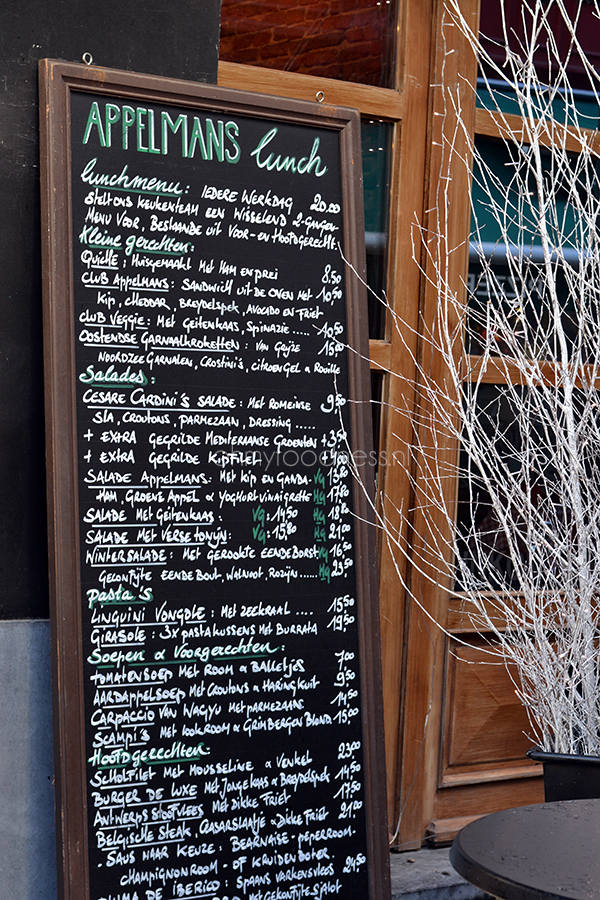 APPELMANS lunch
lunchmenu: IEDERE WERKDAG 20,00
STELT ONS KEUKENTEAM EEN WISSELEND 2-GANGEN-
MENU VOOR, BESTAANDE UIT VOOR- EN HOOFDGERECHT.
Kleine gerechten:
QUICHE: HUISGEMAAKT MET HAM EN PREI 8,50
CLUB APPELMANS: SANDWICH UIT DE OVEN MET 10,50
KIP, CHEDDAR, BREYDELSPEK, AVOCADO EN FRIET
CLUB VEGGIE: MET GEITENKAAS, SPINAZIE..... 10,50
OOSTENDSE GARNAALKROKETTEN: VAN GRIJZE 15,00
NOORDZEE GARNALEN, CROSTINI'S, CITROENGEL & ROUILLE
Salades:
CESARE CARDINI'S SALADE: MET ROMEINSE 9,50
SLA, CROUTONS, PARMEZAAN, DRESSING.....
+ EXTRA GEGRILDE MEDITERRANSE GROENTEN +3,50
+ EXTRA GEGRILDE KIPFILET
SALADE APPELMANS: MET KIP EN GANDA- VG 13,80
HAM, GROENE APPEL & YOGHURTVINAIGRETTE HG 17,80
SALADE MET GEITENKAAS: VG: 14,50 HG 18,00
SALADE MET VERSE TONIJN: VG: 15,80 HG 21,00
WINTERSALADE: MET GEROOKTE EENDEBORST VG 16,50
GEKONFIJTE EENDEBOUT, WALNOOT, ROZIJN...... HG 23,50
pasta's
LINGUINI VONGOLE: MET ZEEKRAAL.... 15,50
GIRASOLE: 3X PASTAKUSSENS MET BURRATA 19,50
Soepen & Voorgerechten:
TOMATENSOEP MET ROOM & BALLETJES 7,00
AARDAPPELSOEP MET CROUTONS & HARINGKUIT 9,50
CARPACCIO VAN WAGYU MET PARMEZAAN 14,50
SCAMPI'S MET LOOKROOM & GRIMBERGEN BLOND 15,00
Hoofdgerechten:
SCHOLFILET MET MOUSSELINE & VENKEL 23,00
BURGER DE LUXE MET JONGE KAAS & BREYDELSPEK 14,50
ANTWERPS STOOFVLEES MET DIKKE FRIET 17,50
BELGISCHE STEAK, CAESARSLAATJE & DIKKE FRIET 21,00
- SAUS NAAR KEUZE: BEARNAISE - PEPERROOM-
CHAMPIGNONROOM - OF KRUIDENBOTER.
PLUMA DE IBERICO: SPAANS VARKENSVLEES 21,50
MET GEKONFIJTE SJALOT
myfoodness.nl